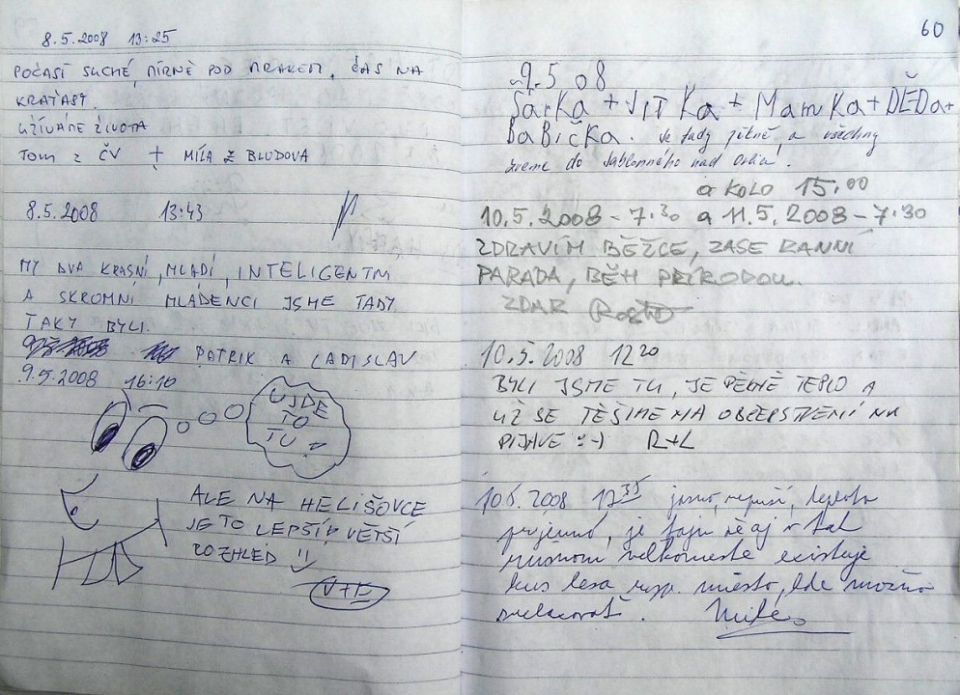 8.5.2008 13:25
POČASÍ SUCHÉ, MÍRNĚ POD MRAKEM, ČAS NA
KRAŤASY.
UŽÍVÁME ŽIVOTA
TOM Z ČV + MÍLA Z BLUDOVA
8.5.2008 13:43
MY DVA KRASNÍ, MLADÍ, INTELIGENTNI
A SKROMNÍ MLÁDENCI JSME TADY
TAKY BYLI.
PATRIK A LADISLAV
9.5.2008 16:10
UJDE
TO
TU
ALE NA HELIŠOVCE
JE TO LEPŠÍ, VĚTŠÍ
ROZHLED
V+E
60
9.5 08
ŠárKa + VÍTKa + MamKa + DĚDa +
BaBIČKa. Je tady pěkně a všechny
zveme do Jablonného nad Orlicí.
a KOLO 15.00
10.5.2008 - 7.30 a 11.5.2008 - 7.30
ZDRAVÍM BĚŽCE, ZASE RANNÍ
PARÁDA, BĚH PŘÍRODOU.
ZDAR
10.5.2008 12 20
BYLI JSME TU, JE PĚKNĚ TEPLO A
UŽ SE TĚŠÍME NA OBČERSTVENÍ NA
PIJAVE :-) R+L
10.5.2008 12 35 jasno, neprší, teplota
príjemná, je fajn že aj v tak
velkomeste existuje
kus lesa resp. miesto, kde možno